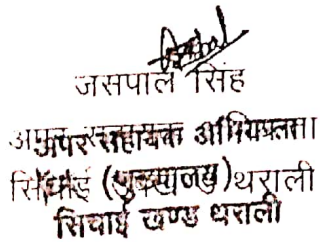 जसपाल सिंह
अपर सहायक अभियन्ता
सिंचाई थराली
सिंचाई खण्ड थराली